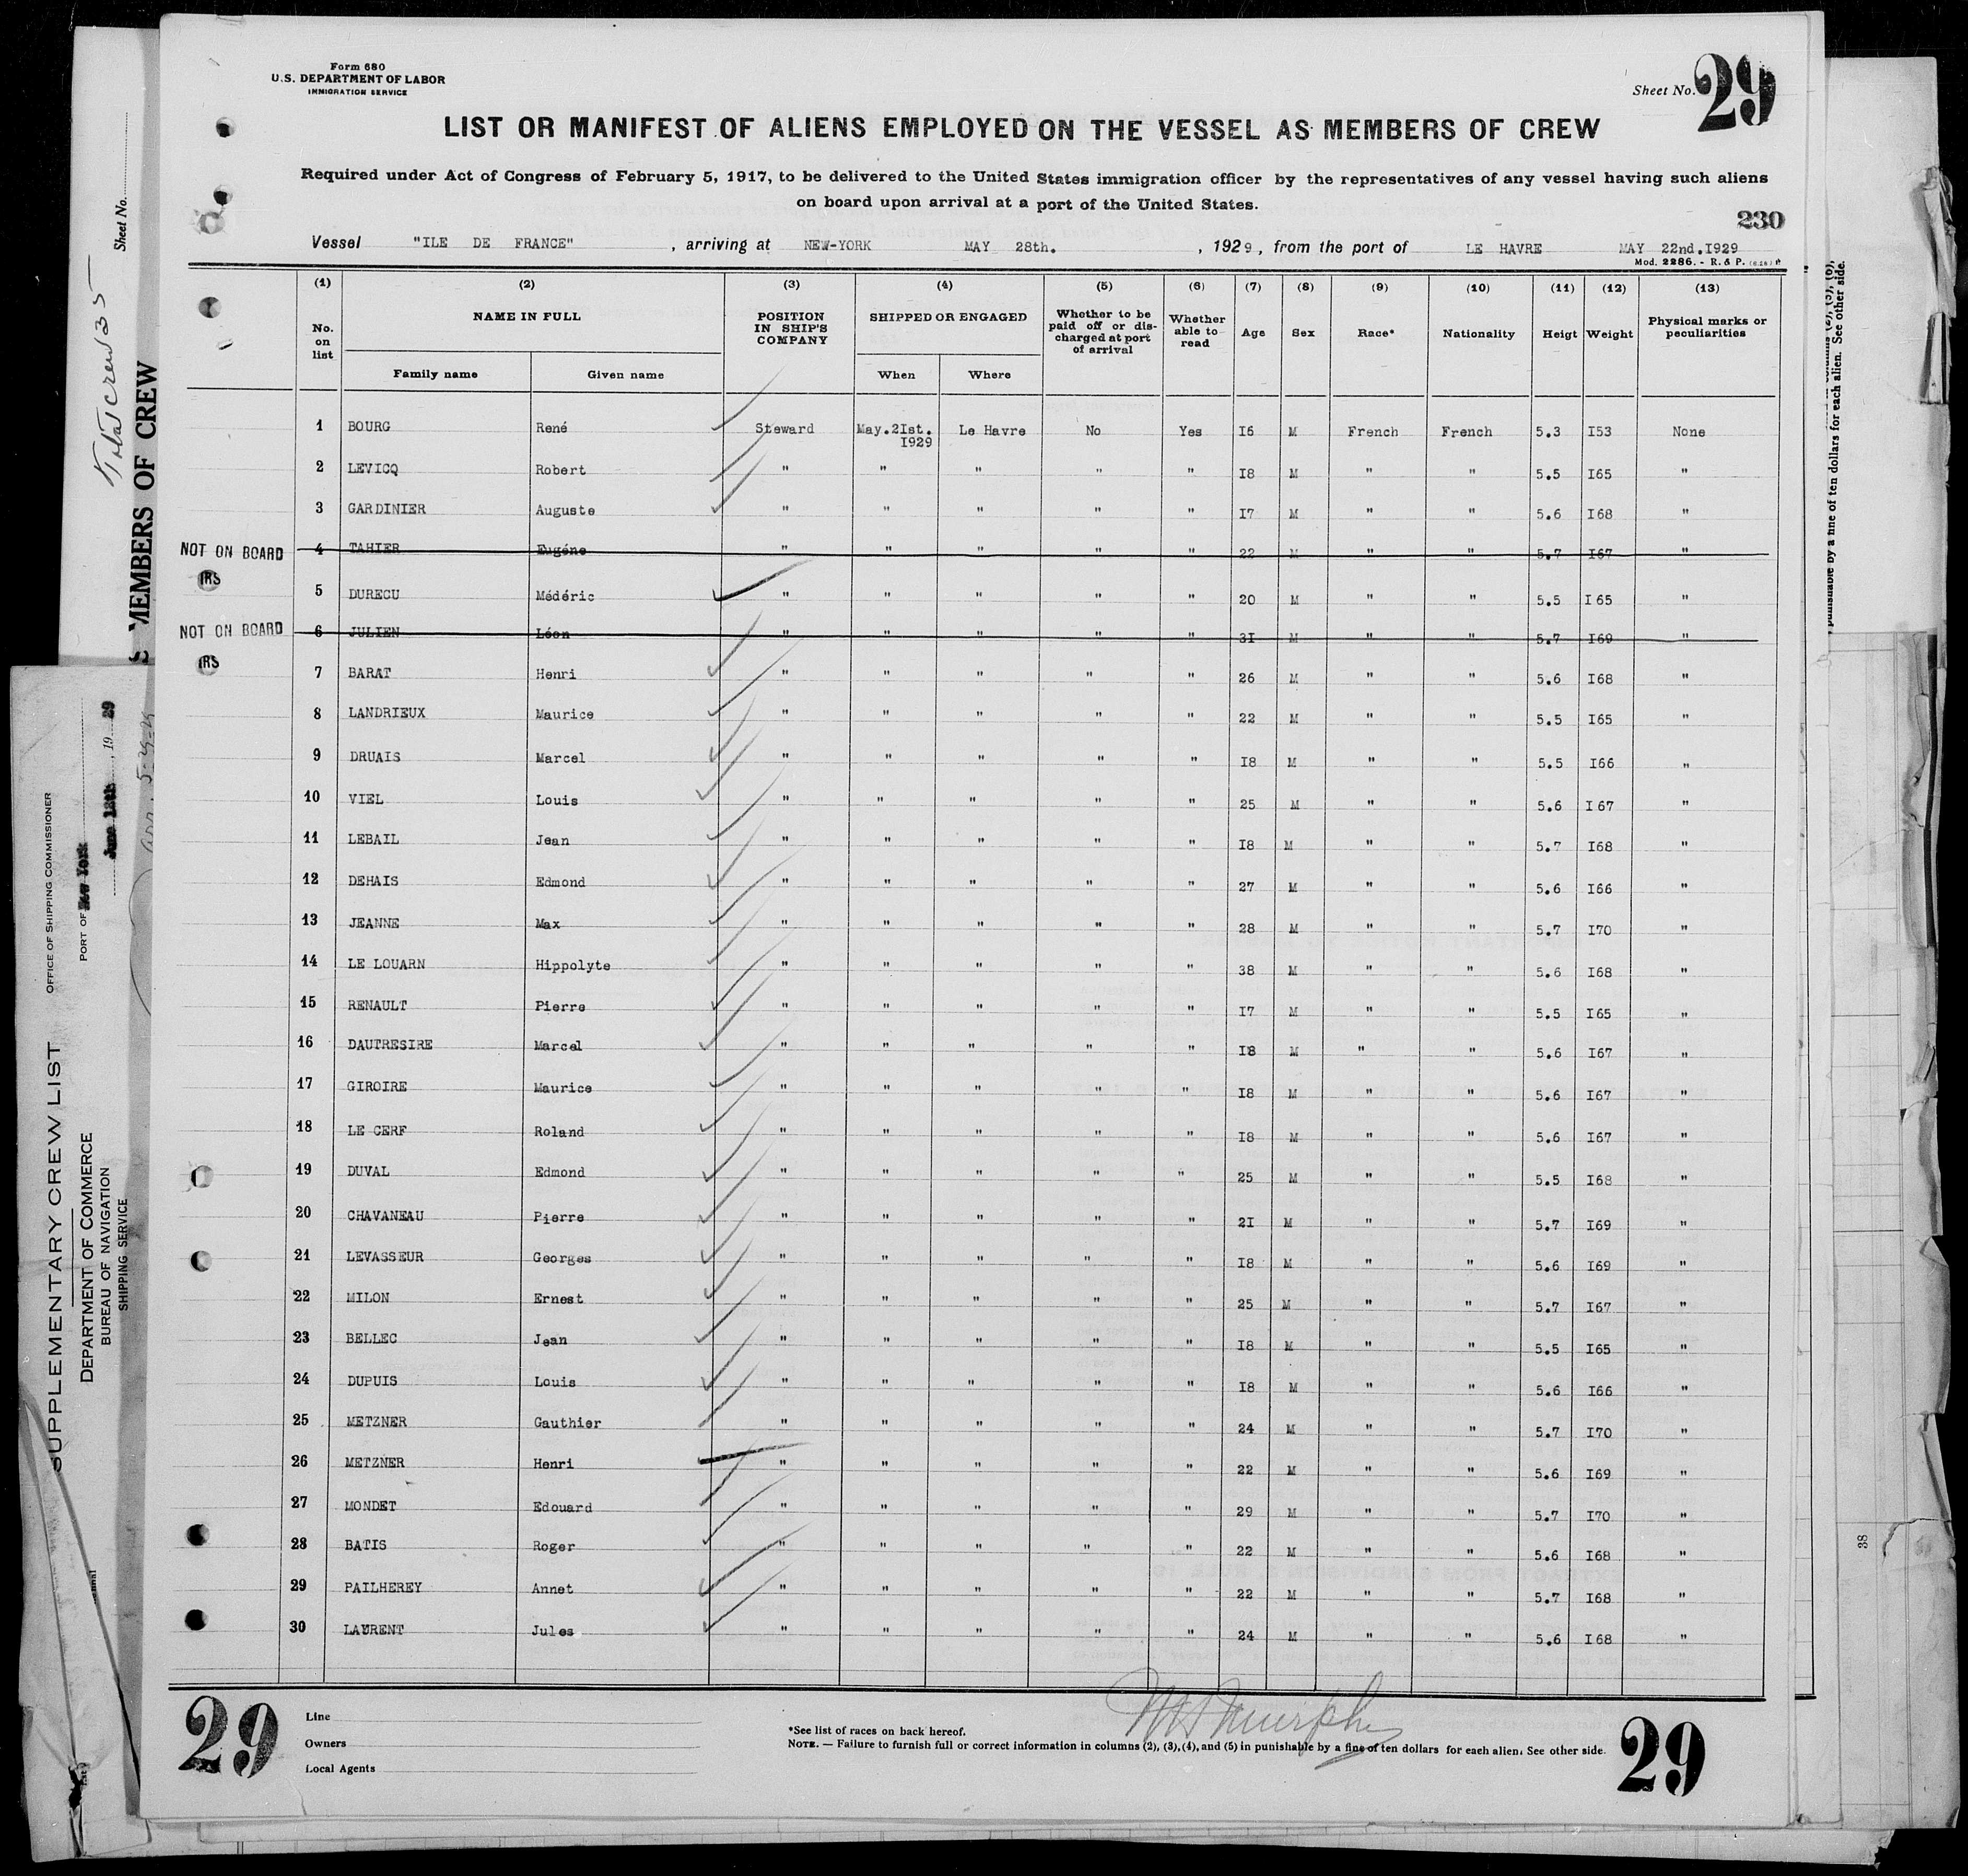 Form 680
U.S. DEPARTMENT OF LABOR
IMMIGRATION SERVICE
Sheet No. 29
LIST OR MANIFEST OF ALIENS EMPLOYED ON THE VESSEL AS MEMBERS OF CREW
Required under Act of Congress of February 5, 1917, to be delivered to the United States immigration officer by the representatives of any vessel having such aliens
on board upon arrival at a port of the United States.
230
Vessel "ILE DE FRANCE", arriving at NEW-YORK MAY 28th., 1929, from the port of LE HAVRE MAY 22nd.I929
Mod. 2286. - R. & P.
(1) (2) (3) (4) (5) (6) (7) (8) (9) (10) (11) (12) (13)
No. on list NAME IN FULL Family name Given name POSITION IN SHIP'S COMPANY SHIPPED OR ENGAGED When Where Whether to be paid off or discharged at port of arrival Whether able to read Age Sex Race* Nationality Heigt Weight Physical marks or peculiarities
1 BOURG René Steward May.2Ist. I929 Le Havre No Yes I6 M French French 5.3 I53 None
2 LEVICQ Robert " " " " " I8 M " " 5.5 I65 "
3 GARDINIER Auguste " " " " " I7 M " " 5.6 I68 "
NOT ON BOARD 4 TAHIER Eugéne " " " " " 22 M " " 5.7 I67 "
IRS
5 DURECU Médéric " " " " " 20 M " " 5.5 I65 "
NOT ON BOARD 6 JULIEN Léon " " " " " 3I M " " 5.7 I69 "
IRS
7 BARAT Henri " " " " " 26 M " " 5.6 I68 "
8 LANDRIEUX Maurice " " " " " 22 M " " 5.5 I65 "
9 DRUAIS Marcel " " " " " I8 M " " 5.5 I66 "
10 VIEL Louis " " " " " 25 M " " 5.6 I67 "
11 LEBAIL Jean " " " " " I8 M " " 5.7 I68 "
12 DEHAIS Edmond " " " " " 27 M " " 5.6 I66 "
13 JEANNE Max " " " " " 28 M " " 5.7 I70 "
14 LE LOUARN Hippolyte " " " " " 38 M " " 5.6 I68 "
15 RENAULT Pierre " " " " " I7 M " " 5.5 I65 "
16 DAUTRESIRE Marcel " " " " " I8 M " " 5.6 I67 "
17 GIROIRE Maurice " " " " " I8 M " " 5.6 I67 "
18 LE CERF Roland " " " " " I8 M " " 5.6 I67 "
19 DUVAL Edmond " " " " " 25 M " " 5.5 I68 "
20 CHAVANEAU Pierre " " " " " 2I M " " 5.7 I69 "
21 LEVASSEUR Georges " " " " " I8 M " " 5.6 I69 "
22 MILON Ernest " " " " " 25 M " " 5.7 I67 "
23 BELLEC Jean " " " " " I8 M " " 5.5 I65 "
24 DUPUIS Louis " " " " " I8 M " " 5.6 I66 "
25 METZNER Gauthier " " " " " 24 M " " 5.7 I70 "
26 METZNER Henri " " " " " 22 M " " 5.6 I69 "
27 MONDET Edouard " " " " " 29 M " " 5.7 I70 "
28 BATIS Roger " " " " " 22 M " " 5.6 I68 "
29 PAILHEREY Annet " " " " " 22 M " " 5.7 I68 "
30 LAURENT Jules " " " " " 24 M " " 5.6 I68 "
29
Line
Owners
Local Agents
*See list of races on back hereof.
NOTE. — Failure to furnish full or correct information in columns (2), (3), (4), and (5) in punishable by a fine of ten dollars for each alien. See other side.
29
Sheet No.
Total crew 35
MEMBERS OF CREW
SUPPLEMENTARY CREW LIST
DEPARTMENT OF COMMERCE
BUREAU OF NAVIGATION
SHIPPING SERVICE
OFFICE OF SHIPPING COMMISSIONER
PORT OF New York
June 12th, 19 29
punishable by a fine of ten dollars for each alien. See other side.
38